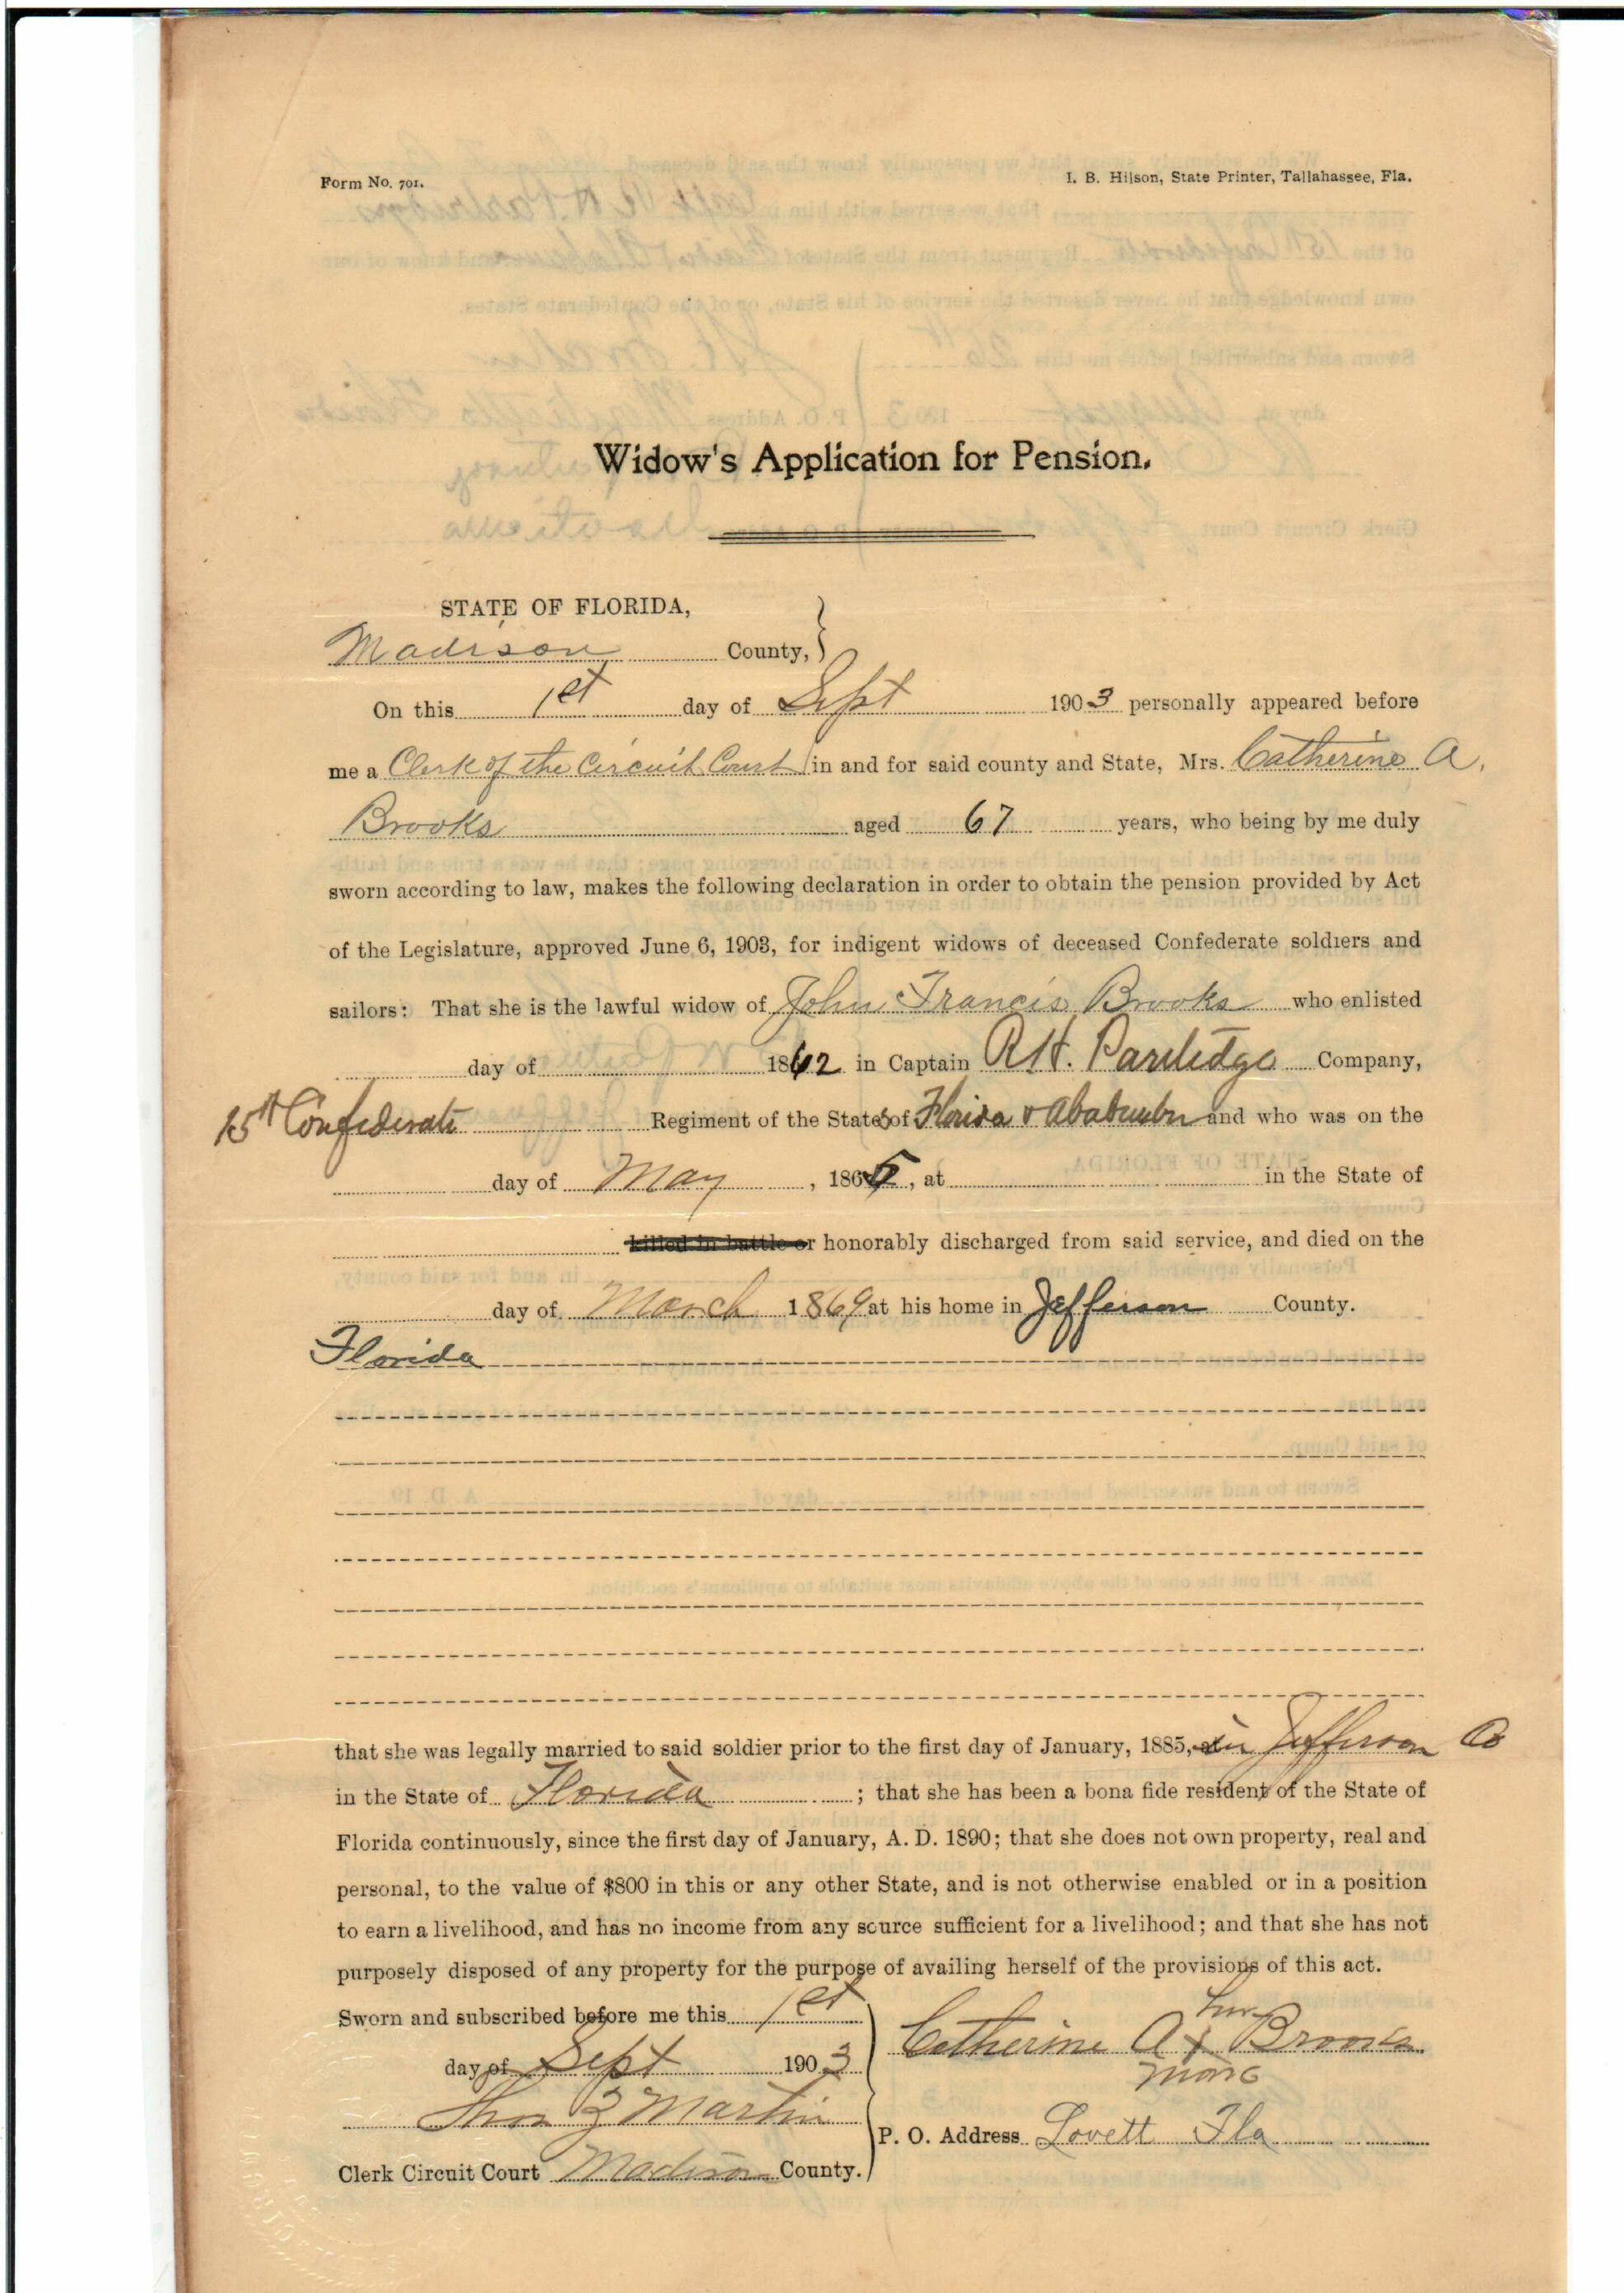 Form No. 701.
I. B. Hilson, State Printer, Tallahassee, Fla.
Widow's Application for Pension.
STATE OF FLORIDA,
Madison County,
On this 1st day of Sept 1903 personally appeared before
me a Clerk of the Circuit Court in and for said county and State, Mrs. Catherine A.
Brooks aged 67 years, who being by me duly
sworn according to law, makes the following declaration in order to obtain the pension provided by Act
of the Legislature, approved June 6, 1903, for indigent widows of deceased Confederate soldiers and
sailors: That she is the lawful widow of John Francis Brooks who enlisted
day of 1862 in Captain R.H. Partridge Company,
15th Confederate Regiment of the States of Florida & and who was on the
day of May, 1865, at in the State of
killed in battle or honorably discharged from said service, and died on the
day of March 1869 at his home in Jefferson County.
Florida
that she was legally married to said soldier prior to the first day of January, 1885, in Jefferson Co
in the State of Florida; that she has been a bona fide resident of the State of
Florida continuously, since the first day of January, A. D. 1890; that she does not own property, real and
personal, to the value of $800 in this or any other State, and is not otherwise enabled or in a position
to earn a livelihood, and has no income from any source sufficient for a livelihood; and that she has not
purposely disposed of any property for the purpose of availing herself of the provisions of this act.
Sworn and subscribed before me this 1st
day of Sept 1903
her
Catherine A x Brooks
mark
Martin
P. O. Address Lovett Fla
Clerk Circuit Court Madison County.